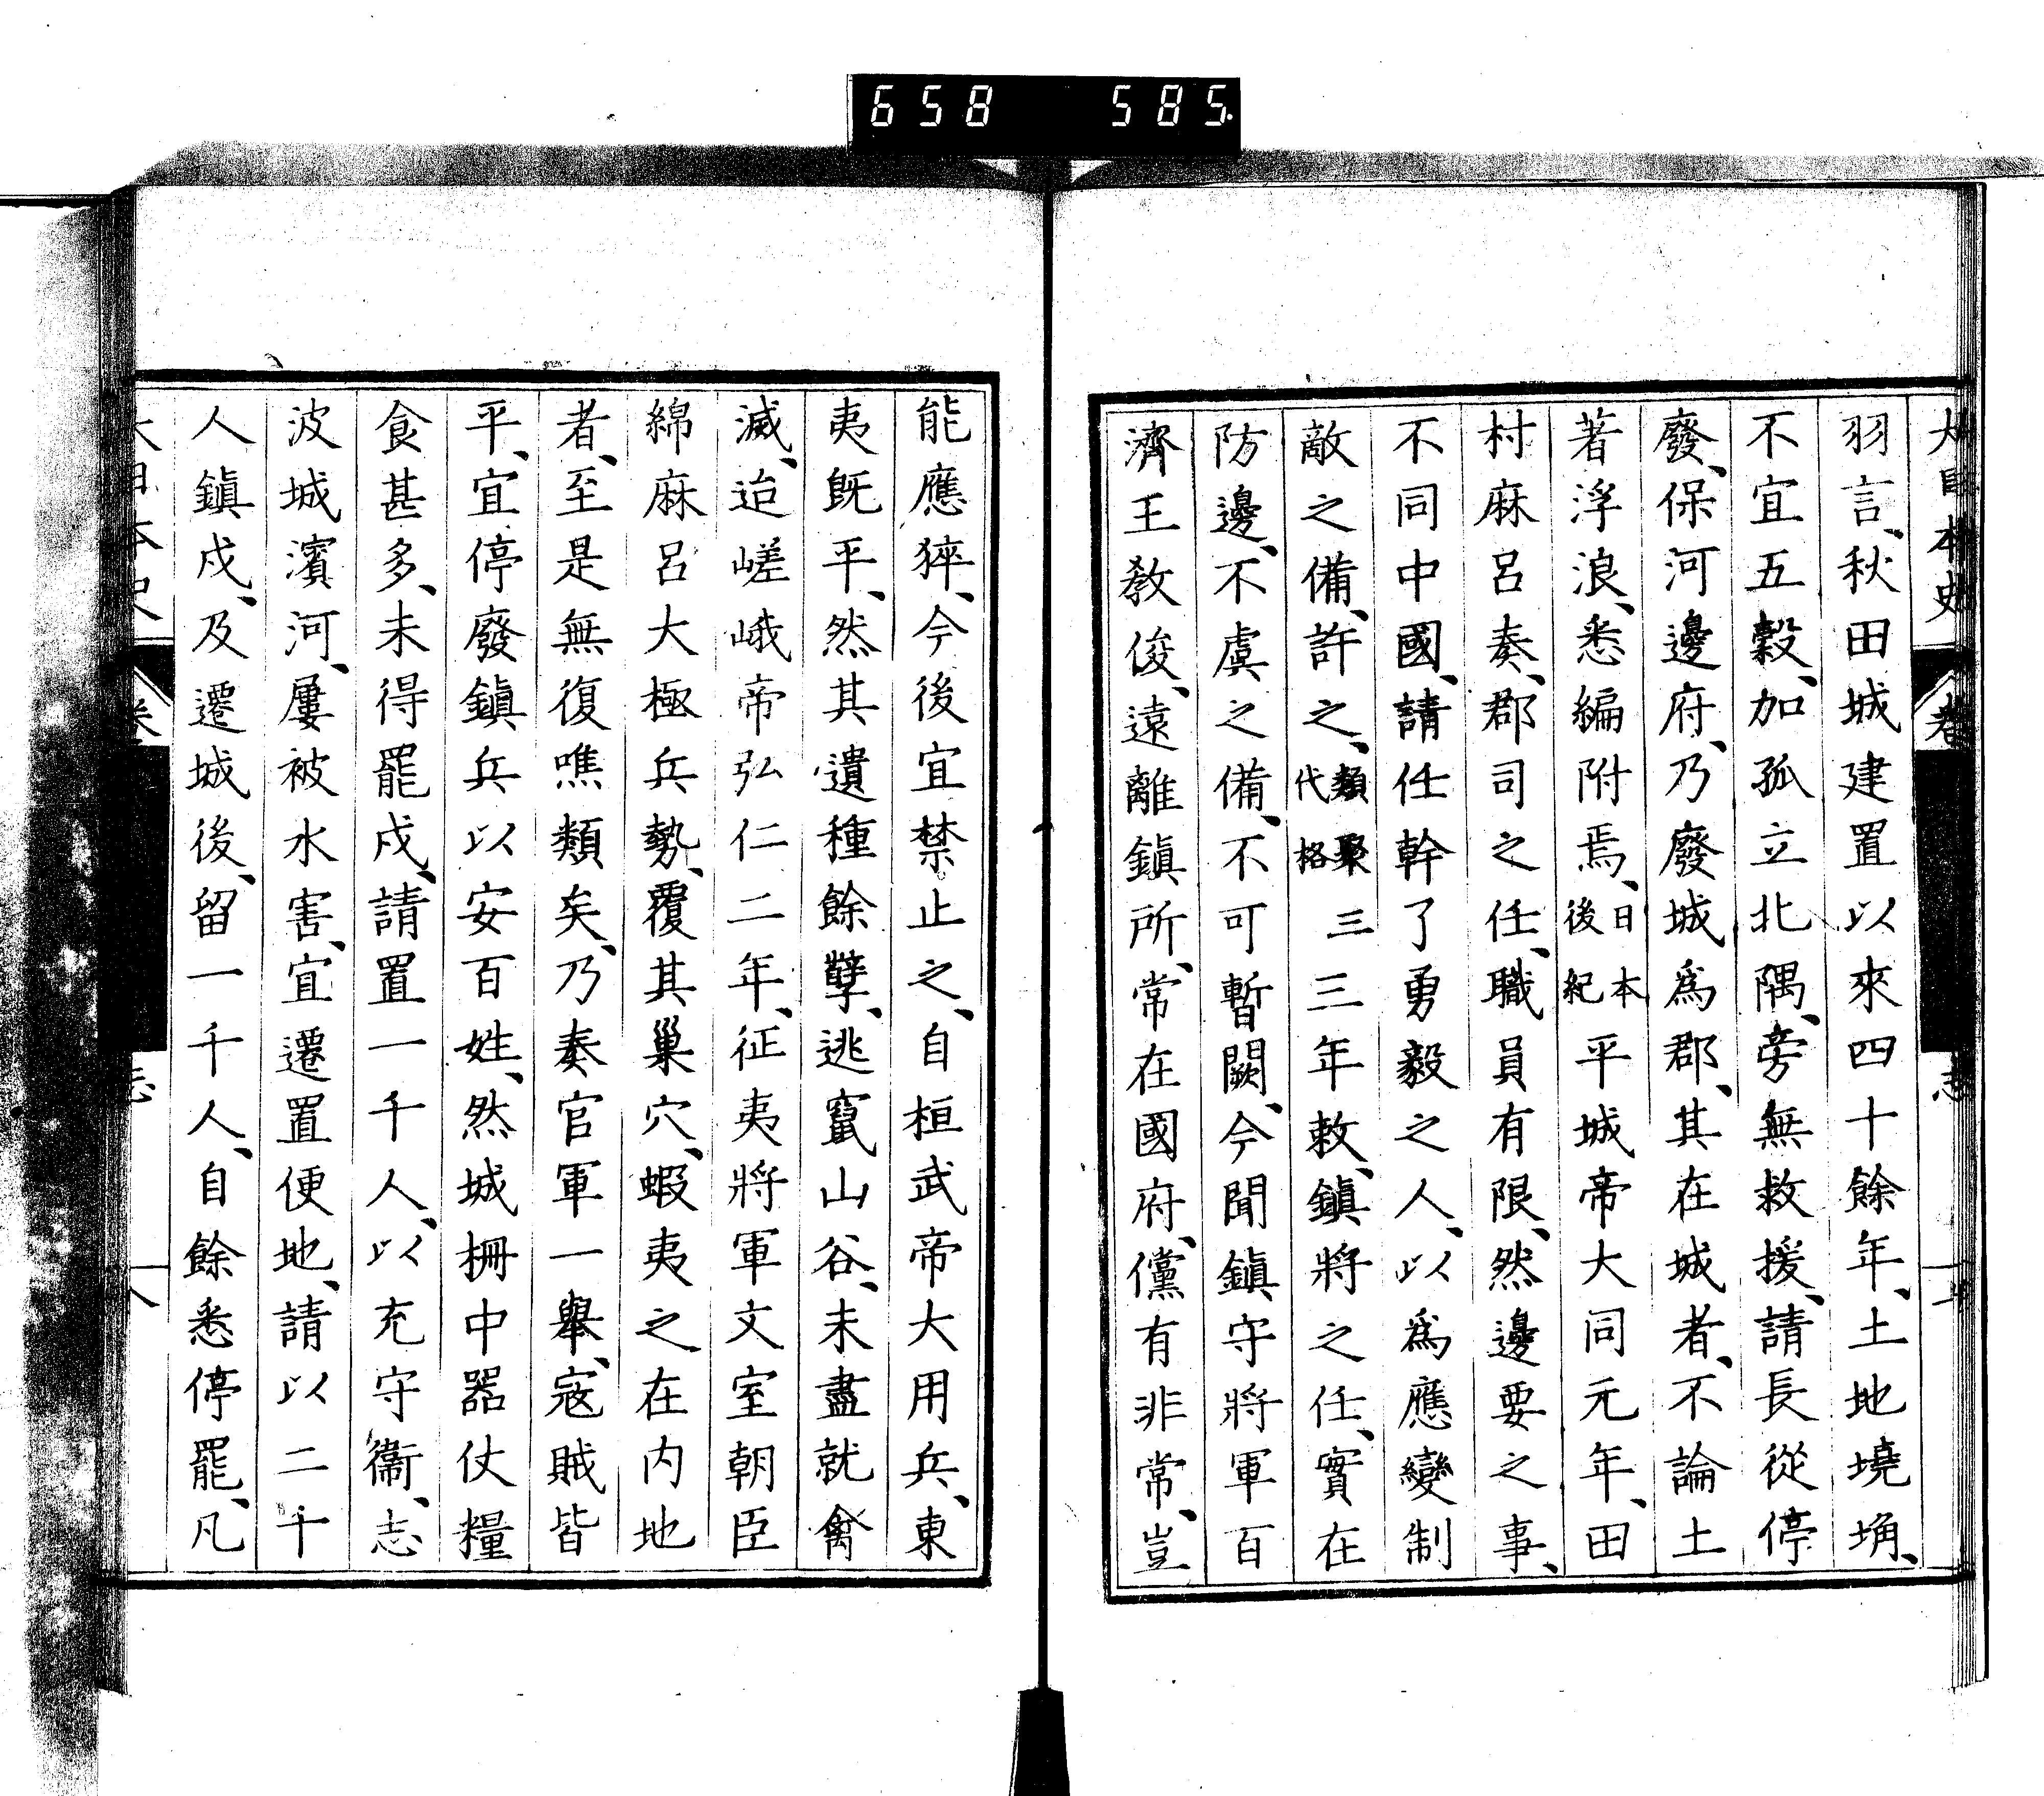 658 585.
大日本史 卷 志
羽言、秋田城建置以來四十餘年、土地墝埆、
不宜五穀、加孤立北隅、旁無救援、請長從停
廢、保河邊府、乃廢城爲郡、其在城者、不論土
著浮浪、悉編附焉、日本後紀平城帝大同元年、田
村麻呂奏、郡司之任、職員有限、然邊要之事、
不同中國、請任幹了勇毅之人、以爲應變制
敵之備、許之、類聚三代格三年敕、鎭將之任、實在
防邊、不虞之備、不可暫闕、今聞鎭守將軍百
濟王教俊、遠離鎭所、常在國府、儻有非常、豈
能應猝、今後宜禁止之、自桓武帝大用兵、東
夷既平、然其遺種餘孽、逃竄山谷、未盡就禽
滅、迨嵯峨帝弘仁二年、征夷將軍文室朝臣
綿麻呂大極兵勢、覆其巢穴、蝦夷之在内地
者、至是無復噍類矣、乃奏官軍一舉、寇賊皆
平、宜停廢鎭兵以安百姓、然城柵中器仗糧
食甚多、未得罷戍、請置一千人、以充守衞、志
波城濱河、屢被水害、宜遷置便地、請以二千
人鎭戍、及遷城後、留一千人、自餘悉停罷、凡
大日本史 卷 志 八